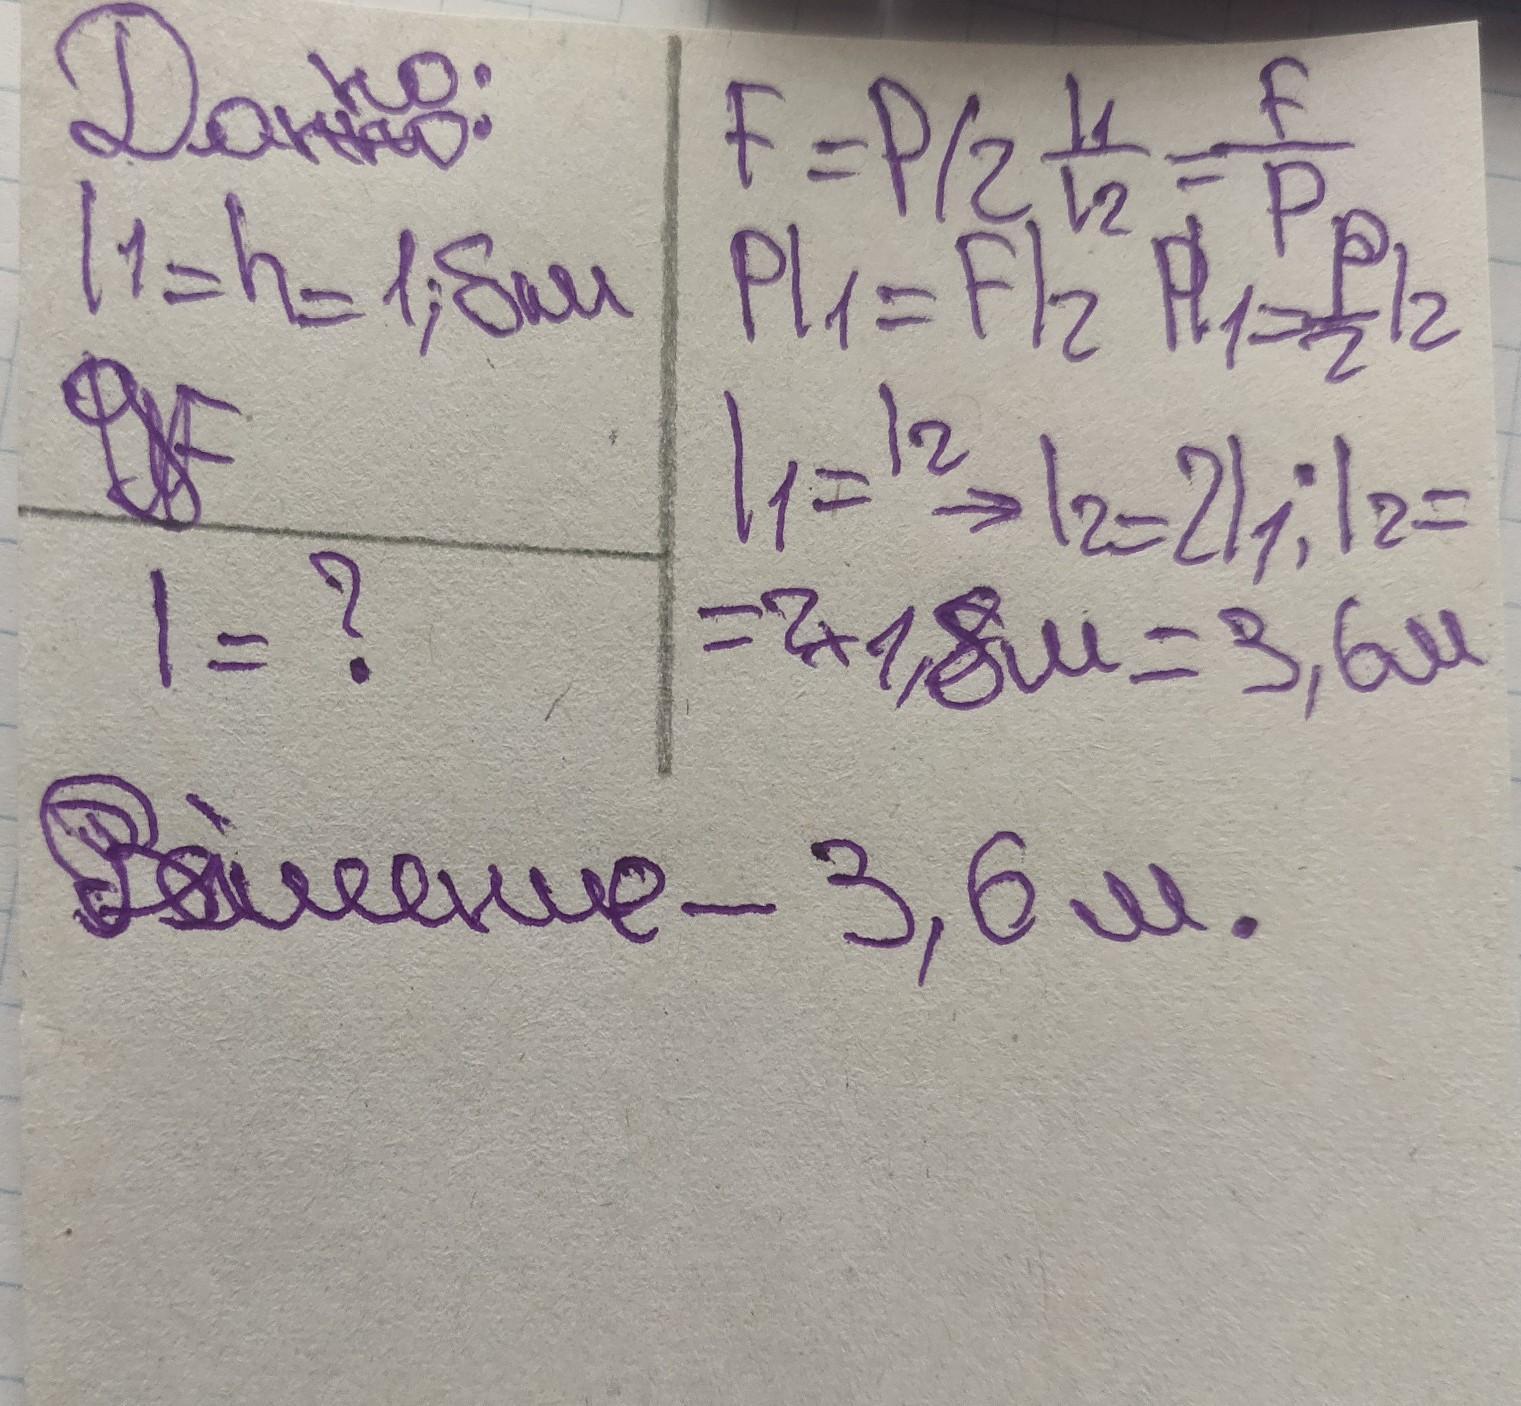 Данно:
l1 = h = 1,8м
l = ?
F = P/2 l1/l2 = F/P
Pl1 = Fl2 Pl1 = P/2 l2
l1 = l2 → l2 = 2l1; l2 =
= 2 × 1,8м = 3,6м
Решение – 3,6 м.